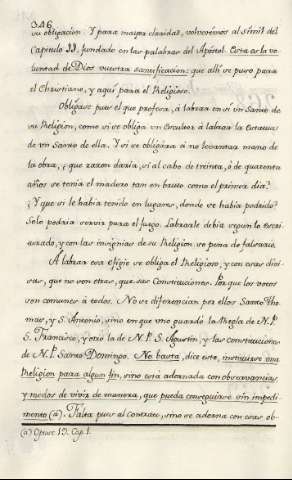 346
su obligacion. Y para mayor claridad, volvamos al simil del
Capitulo II, fundado en las palabras del Apostol. Esta es la vo-
luntad de Dios vuestra santificacion: que alli se puso para
el Christiano, y aqui para el Religioso.
Obligase pues el que profesa, á labrar en sí un Santo de
su Religion, como si se obliga un Escultor á labrar la Estatua
de un Santo de ella. Y si se obligara á no levantar mano de
la obra, ¿que razon daria, si al cabo de treinta, ó de quarenta
años se tenia el madero tan en bruto como el primer dia?
¿Y que si le habia tenido en lugares, donde se habia podrido?
Solo podria servir para el fuego. Labrarle debia segun lo escri-
turado, y con las insignias de su Religion so pena de falsario.
A labrar esa efigie se obliga el Religioso, y con esas divi-
sas, que no son otras, que sus Constituciones. Porque los votos
son comunes á todos. No se diferencian por ellos Santo Tho-
mas, y S. Antonio, sino en que uno guardó la Regla de N. P.
S. Francisco, y otro la de N. P. S. Agustin, y las constituciones
de N. P. Santo Domingo. No basta, dice este, instituirse una
Religion para algun fin, sino está adornada con observancias
y modos de vivir de manera, que pueda conseguirse sin impedi-
mento (a). Falta pues al contrato, sino se adorna con esas ob-
(a) Opusc. 19. Cap. 1.